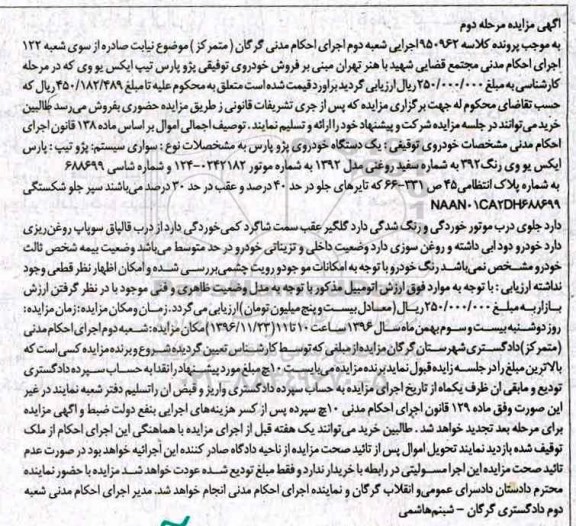 آگهی مزایده مرحله دوم
به موجب پرونده کلاسه ۹۵۰۹۶۲ اجرایی شعبه دوم اجرای احکام مدنی گرگان (متمرکز) موضوع نیابت صادره از سوی شعبه ۱۲۲
اجرای احکام مدنی مجتمع قضایی شهید با هنر تهران مبنی بر فروش خودروی توقیفی پژو پارس تیپ ایکس یو وی که در مرحله
کارشناسی به مبلغ ۲۵۰/۰۰۰/۰۰۰ ریال ارزیابی گردید برآورد قیمت شده است متعلق به محکوم علیه تا مبلغ ۴۵۰/۱۸۲/۴۸۹ ریال که
حسب تقاضای محکوم له جهت برگزاری مزایده که پس از جری تشریفات قانونی ز طریق مزایده حضوری بفروش می‌رسد طالبین
خرید می‌توانند در جلسه مزایده شرکت و پیشنهاد خود را ارائه و تسلیم نمایند. توصیف اجمالی اموال بر اساس ماده ۱۳۸ قانون اجرای
احکام مدنی مشخصات خودروی توقیفی: یک دستگاه خودروی پژو پارس به مشخصلات نوع: سواری سیستم: پژو تیپ: پارس
ایکس یو وی رنگ ۳۹۲ به شماره سفید روغنی مدل ۱۳۹۲ به شماره موتور ۰۲۴۲۱۸۲-۱۲۴ و شماره شاسی ۶۸۸۶۹۹
به شماره پلاک انتظامی ۴۵ص۳۳۱-۶۶ که تایرهای جلو در حد ۴۰ درصد و عقب در حد ۳۰ درصد می‌باشند سپر جلو شکستگی
NAAN۰۱CA۲DH۶۸۸۶۹۹
دارد جلوی درب موتور خوردگی و رنگ شدگی دارد گلگیر عقب سمت شاگرد کمی خوردگی دارد از درب قالپاق سوپاپ روغن‌ریزی
دارد خودرو دود آبی داشته و روغن سوزی دارد وضعیت داخلی و تزیناتی خودرو در حد متوسط می‌باشد وضعیت بیمه شخص ثالث
خودرو مشخص نمی‌باشد رنگ خودرو با توجه به امکانات موجود و رویت چشمی بررسی شده و امکان اظهار نظر قطعی وجود
نداشته ارزیابی: با توجه به موارد فوق ارزش اتومبیل مذکور با توجه به مدل وضعیت ظاهری و فنی موجود با در نظر گرفتن ارزش
بازار به مبلغ ۲۵۰/۰۰۰/۰۰۰ ریال (معادل بیست و پنج میلیون تومان) ارزیابی می‌گردد. زمان و مکان مزایده: زمان مزایده:
روز دوشنبه بیست و سوم بهمن ماه سال ۱۳۹۶ ساعت ۱۰ تا ۱۱ (۱۳۹۶/۱۱/۲۳) مکان مزایده: شعبه دوم اجرای احکام مدنی
(متمرکز) دادگستری شهرستان گرگان مزایده از مبلغی که توسط کارشناس تعیین گردیده شروع و برنده مزایده کسی است که
بالاترین مبلغ را در جلسه زایده قبول نماید برنده مزایده می‌بایست ۱۰ چ مبلغ مورد پیشنهاد را نقدا به حساب سپرده دادگستری
تودیع و مابقی ان ظرف یکماه از تاریخ اجرای مزایده به حساب سپرده دادگستری واریز و قبض ان را تسلیم دفتر شعبه نمایند در غیر
این صورت وفق ماده ۱۲۹ قانون اجرای احکام مدنی ۱۰ چ سپرده پس از کسر هزینه‌های اجرایی بنفع دولت ضبط و آگهی مزایده
برای مرحله بعد تجدید خواهد شد. طالبین خرید می‌توانند یک هفته قبل از اجرای مزایده با هماهنگی این اجرای احکام از ملک
توقیف شده بازدید نمایند تحویل اموال پس از تائید صحت مزایده از ناحیه دادگاه صادر کننده این اجرائیه خواهد بود در صورت عدم
تائید صحت مزایده این اجرا مسولیتی در رابطه با خریدار ندارد و فقط مبلغ تودیع شده عودت خواهد شد مزایده با حضور نماینده
محترم دادستان دادسرای عمومی و انقلاب گرگان و نماینده اجرای احکام مدنی انجام خواهد شد. مدیر اجرای احکام مدنی شعبه
دوم دادگستری گرگان - شبنم هاشمی